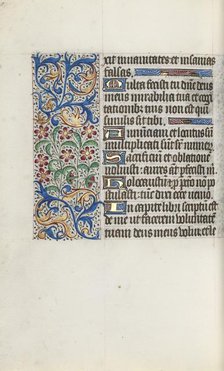 xit in vanitates et insanias
falsas.
Multa fecisti tu dne deus
meus mirabilia tua et cogi
tationibz tuis non est qui
similis sit tibi.
Annunciavi et locutus sum
multiplicati sunt super numez
Sacrificiu et oblatione
noluisti: aures at pfecisti m
Holocaustu et pro pctō no po
stulasti: tuc dixi ecce venio.
In capite libri scriptu est
de me ut facerem voluntate
tuam deus meus volui et le